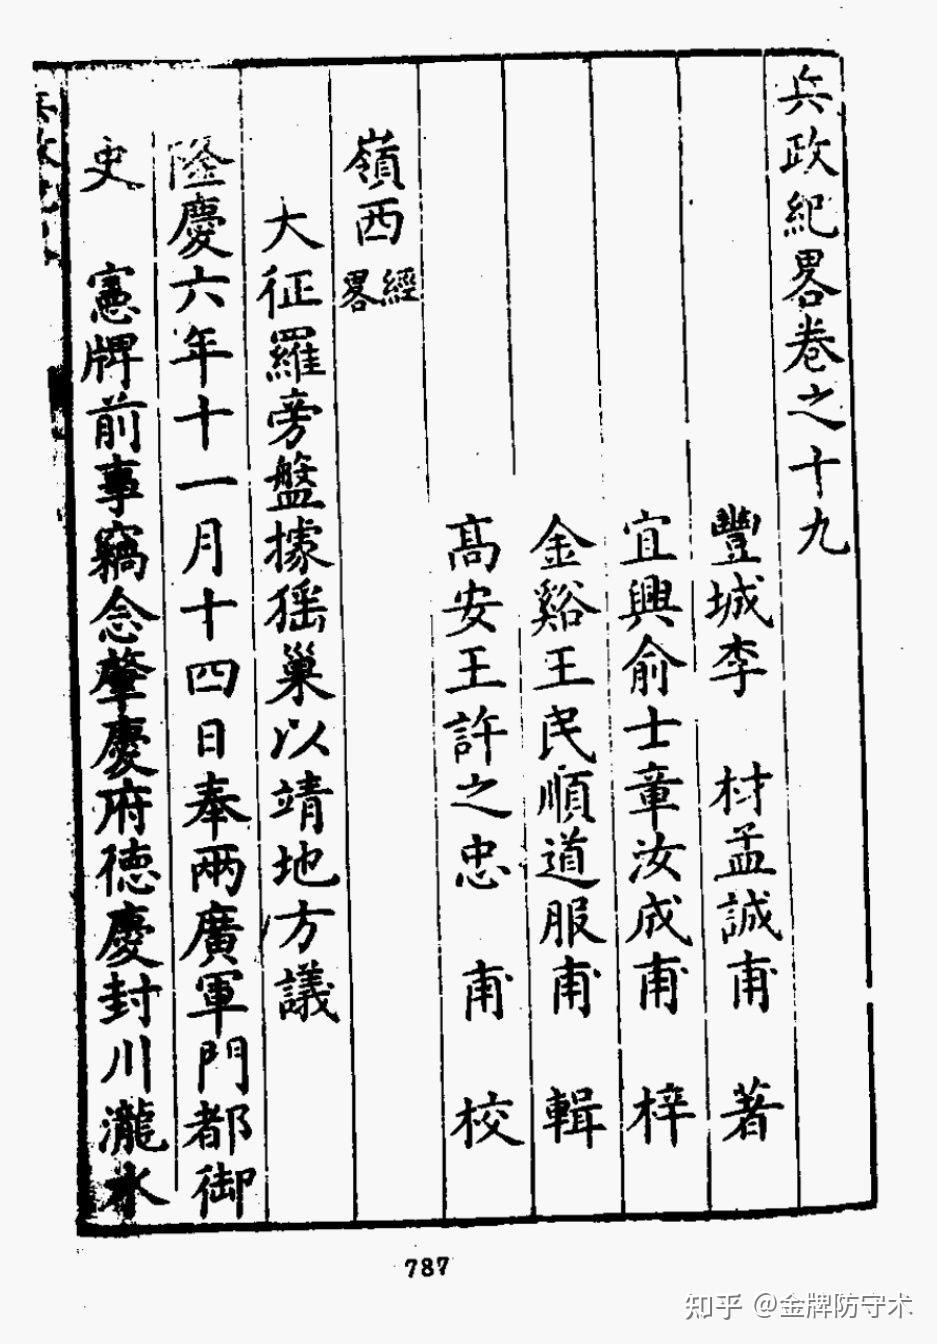 兵政紀畧卷之十九
豐城李 材孟誠甫 著
宜興俞士章汝成甫 梓
金谿王民順道服甫 輯
高安王許之忠 甫 校
嶺西經畧
大征羅旁盤據猺巢以靖地方議
隆慶六年十一月十四日奉兩廣軍門都御
史 憲牌前事竊念肇慶府德慶封川瀧水
787
知乎 @金牌防守术